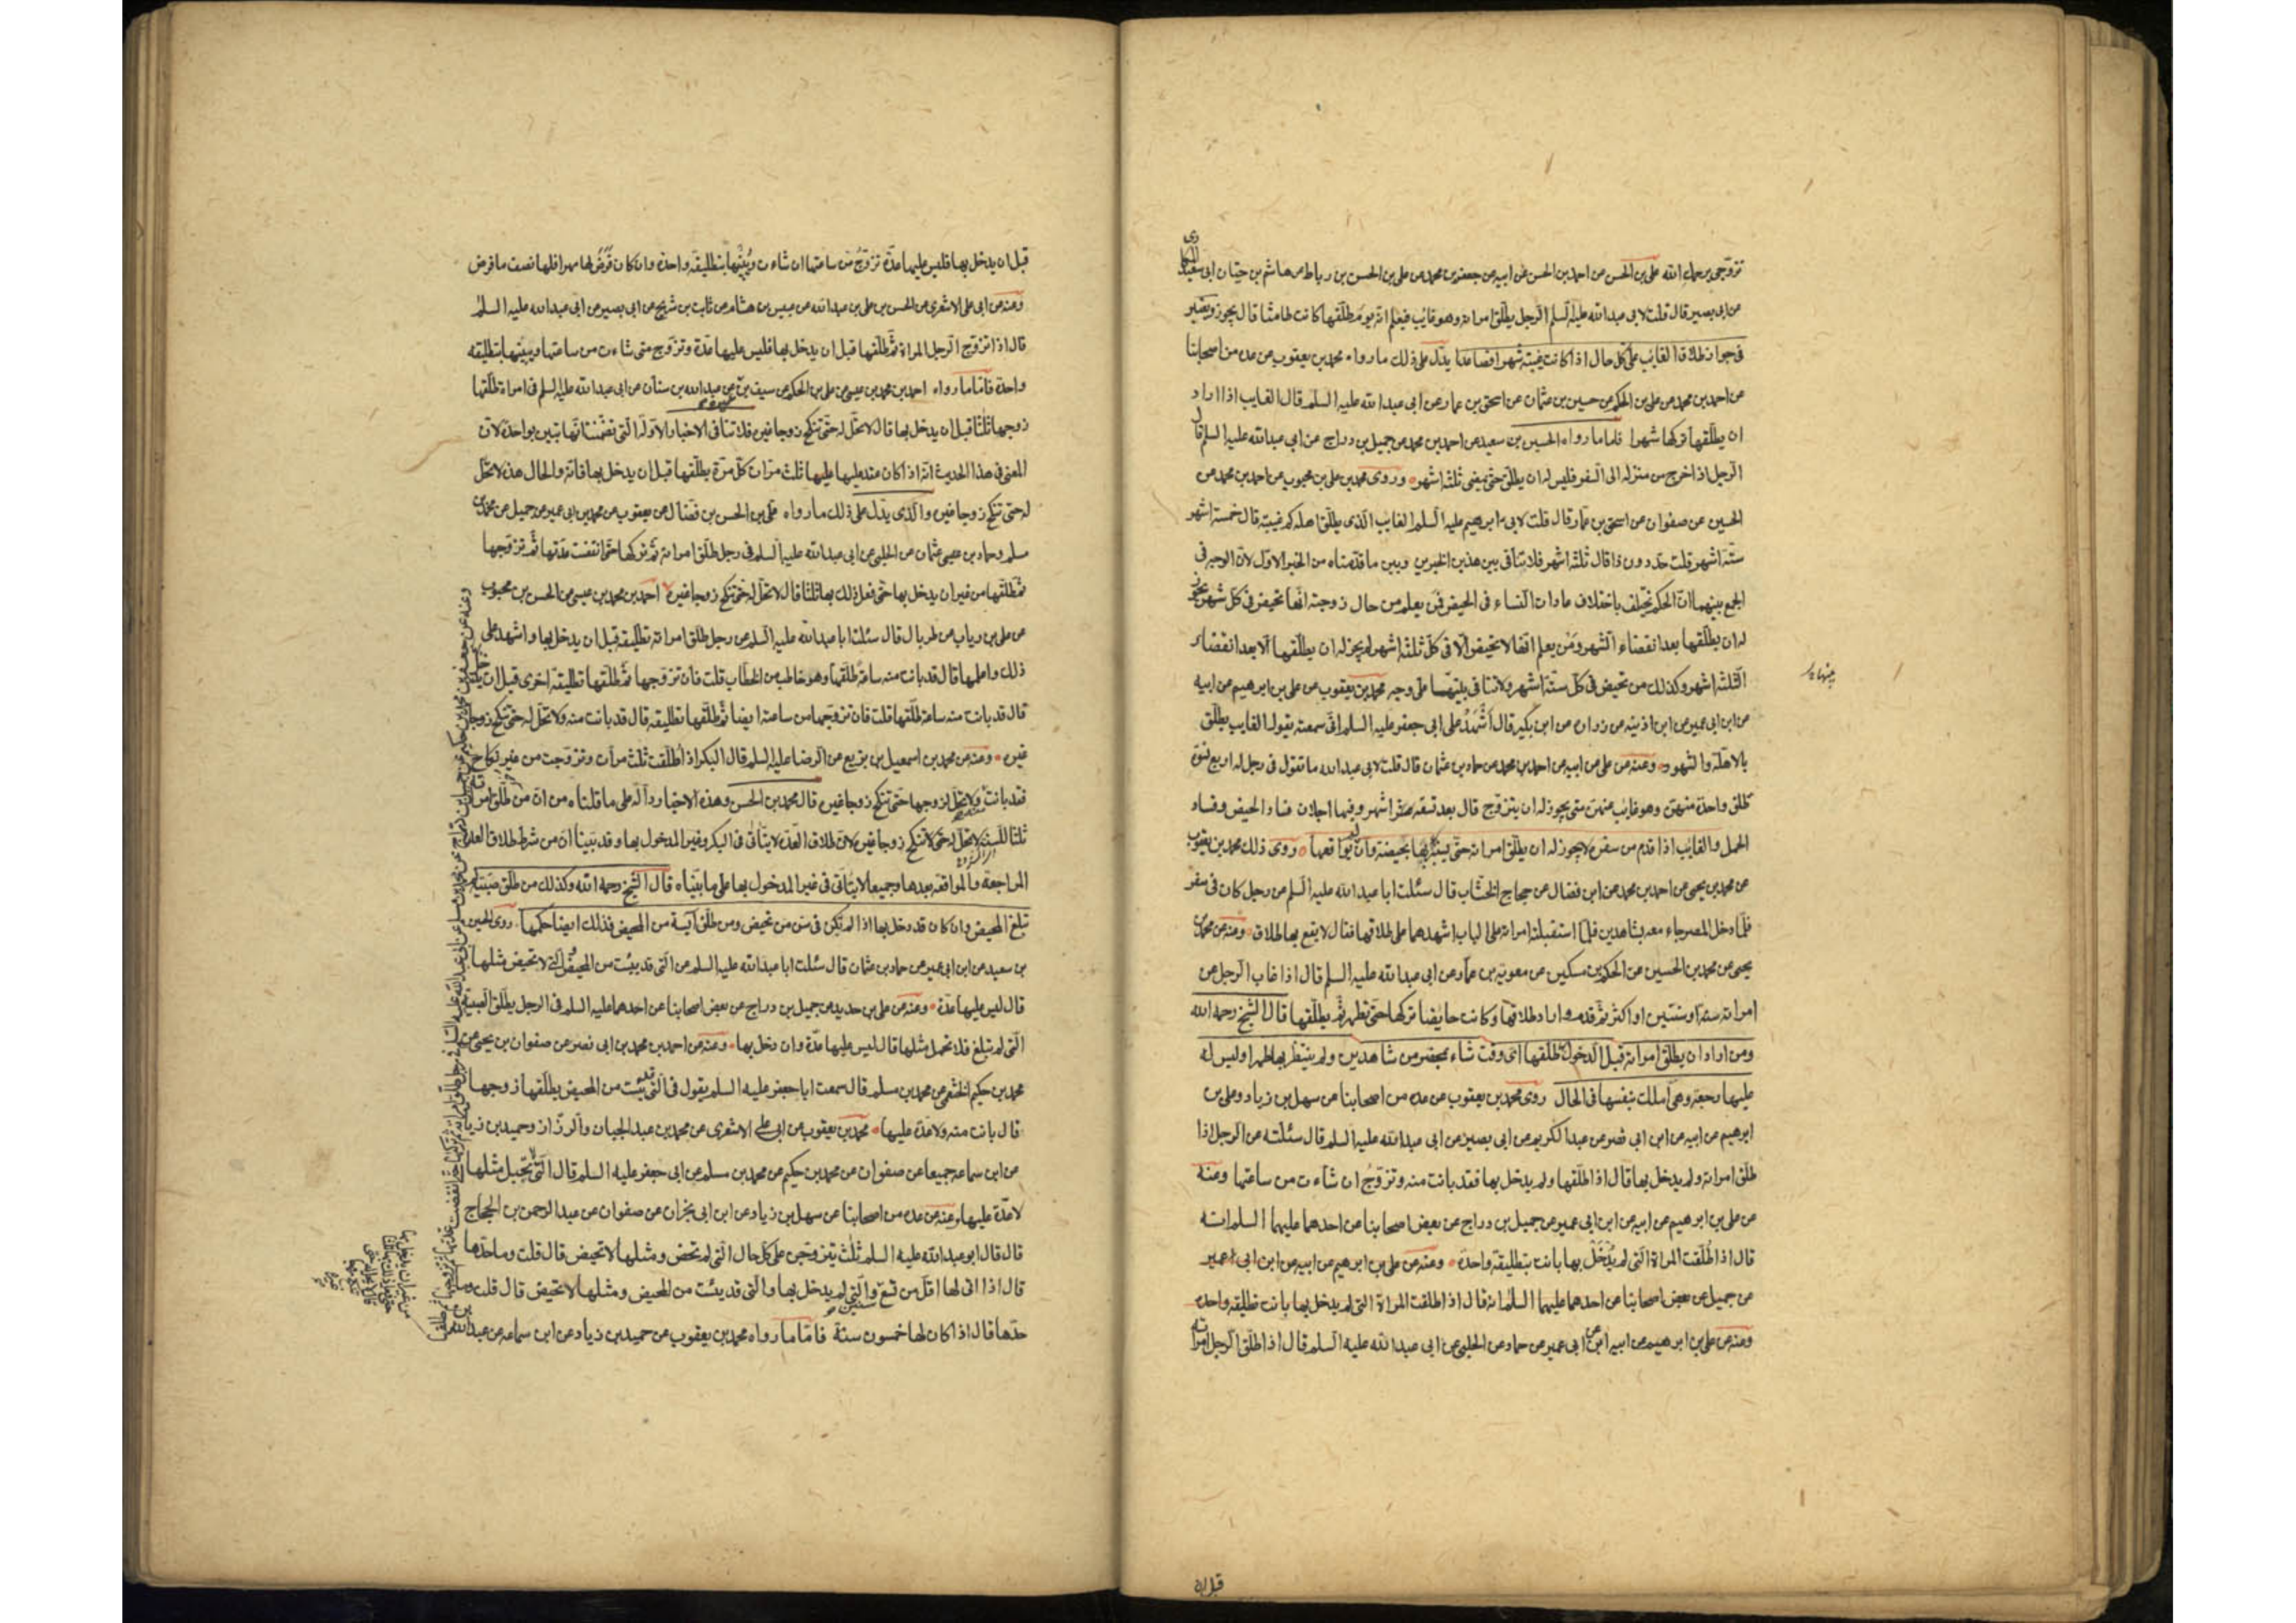 تزوجي يرحمك الله علي بن الحسن عن احمد بن الحسن عن ابيه عن جعفر بن محمد عن علي بن الحسن بن رباط عن هاشم بن حيان ابي سعيد المكاري
عن ابي بصير قال قلت لابي عبد الله عليه السلم الرجل يطلق امراته وهو غايب فيعلم انه يوم طلقها كانت طامثا قال يجوز ويعتبر
في جواز طلاق الغايب على كل حال اذا كانت غيبته شهرا فصاعدا يدل على ذلك ما رواه محمد بن يعقوب عن عدة من اصحابنا
عن احمد بن محمد عن علي بن الحكم عن حسين بن عثمان عن اسحق بن عمار عن ابي عبد الله عليه السلم قال الغايب اذا اراد
ان يطلقها تركها شهرا فاما ما رواه الحسين بن سعيد عن احمد بن محمد عن جميل بن دراج عن ابي عبد الله عليه السلم قال
الرجل اذا خرج من منزله الى السفر فليس له ان يطلق حتى يمضي ثلثة اشهر وروى محمد بن علي بن محبوب عن احمد بن محمد عن
الحسين عن صفوان عن اسحق بن عمار قال قلت لابي ابرهيم عليه السلم الغايب الذي يطلق اهله كم غيبته قال خمسة اشهر
ستة اشهر قلت حد دون ذا قال ثلثة اشهر فلا تنافي بين هذين الخبرين وبين ما قدمناه من الخبر الاول لان الوجه في
الجمع بينهما ان الحكم يختلف باختلاف عادات النساء في الحيض فمن يعلم من حال زوجته انها تحيض في كل شهر يجوز
له ان يطلقها بعد انقضاء الشهر ومن يعلم انها لا تحيض الا في كل ثلثة اشهر لم يجز له ان يطلقها الا بعد انقضاء
الثلثة اشهر وكذلك من تحيض في كل ستة اشهر ولا تنافي بينهما على وجه محمد بن يعقوب عن علي بن ابرهيم عن ابيه
عن ابن ابي عمير عن ابن اذينه عن زرارة عن ابن بكير قال اشهد على ابي جعفر عليه السلم اني سمعته يقول الغايب يطلق
بالاهلة والشهور وعنه عن علي عن ابيه عن احمد بن محمد عن حماد بن عثمان قال قلت لابي عبد الله ما تقول في رجل له اربع نسوة
طلق واحدة منهن وهو غايب عنهن متى يجوز له ان يتزوج قال بعد تسعة اشهر وفيها اجلان فساد الحيض وفساد
الحمل والغايب اذا قدم من سفره لا يجوز له ان يطلق امراته حتى يستبرئها بحيضة وان لم يواقعها وروى ذلك محمد بن يعقوب
عن محمد بن يحيى عن احمد بن محمد عن ابن فضال عن حجاج الخشاب قال سئلت ابا عبد الله عليه السلم عن رجل كان في سفر
فلما دخل المصر جاء معه بشاهدين فلما استقبلته امراته على الباب اشهدهما على طلاقها فقال لا يقع بها طلاق وعنه عن محمد بن
يحيى عن محمد بن الحسين عن الحكم بن مسكين عن معوية بن عمار عن ابي عبد الله عليه السلم قال اذا غاب الرجل عن
امراته سنة او سنتين او اكثر ثم قدم واراد طلاقها وكانت حايضا تركها حتى تطهر ثم يطلقها قال الشيخ رحمه الله
ومن اراد ان يطلق امراته قبل الدخول طلقها اي وقت شاء بمحضر من شاهدين ولم ينتظر بها طهرا وليس له
عليها رجعة وهي املك بنفسها في الحال روى محمد بن يعقوب عن عدة من اصحابنا عن سهل بن زياد وعلي بن
ابرهيم عن ابيه عن ابن ابي نصر عن عبد الكريم عن ابي بصير عن ابي عبد الله عليه السلم قال سئلته عن الرجل اذا
طلق امراته ولم يدخل بها قال اذا طلقها ولم يدخل بها فقد بانت منه وتزوج ان شاءت من ساعتها وعنه
عن علي بن ابرهيم عن ابيه عن ابن ابي عمير عن جميل بن دراج عن بعض اصحابنا عن احدهما عليهما السلم انه
قال اذا طلقت المراة التي لم يدخل بها بانت بتطليقة واحدة وعنه عن علي بن ابرهيم عن ابيه عن ابن ابي عمير
عن جميل عن بعض اصحابنا عن احدهما عليهما السلم انه قال اذا طلقت المراة التي لم يدخل بها بانت تطليقة واحدة
وعنه عن علي بن ابرهيم عن ابيه عن ابن ابي عمير عن حماد عن الحلبي عن ابي عبد الله عليه السلم قال اذا طلق الرجل امراته
قبل ان
قبل ان يدخل بها فليس عليها عدة تزوج من ساعتها ان شاءت ويبينها بتطليقة واحدة وان كان فرض لها مهرا فلها نصف ما فرض
وعنه عن ابي علي الاشعري عن الحسن بن علي بن عبد الله عن عبيس بن هشام عن ثابت بن شريح عن ابي بصير عن ابي عبد الله عليه السلم
قال اذا تزوج الرجل المراة ثم طلقها قبل ان يدخل بها فليس عليها عدة وتزوج متى شاءت من ساعتها ويبينها بتطليقة
واحدة فاما ما رواه احمد بن محمد بن عيسى عن علي بن الحكم عن سيف بن عميرة عن عبد الله بن سنان عن ابي عبد الله عليه السلم في امراة طلقها
زوجها ثلثا قبل ان يدخل بها قال لا تحل له حتى تنكح زوجا غيره فلا تنافي الاخبار الاولة التي تضمنت انها تبين بواحدة لان
المعنى في هذا الحديث انه اذا كان عند عليها عليها ثلث مرات كل مرة يطلقها قبل ان يدخل بها فانه والحال هذه لا تحل
له حتى تنكح زوجا غيره والذي يدل على ذلك ما رواه علي بن الحسن بن فضال عن يعقوب عن محمد بن ابي عمير عن جميل عن محمد بن
مسلم وحماد بن عيسى عثمان عن الحلبي عن ابي عبد الله عليه السلم في رجل طلق امراته ثم تركها حتى انقضت عدتها ثم تزوجها
ثم طلقها من غير ان يدخل بها حتى فعل ذلك بها ثلثا قال لا تحل له حتى تنكح زوجا غيره احمد بن محمد بن عيسى عن الحسن بن محبوب
عن علي بن رياب عن طربال قال سئلت ابا عبد الله عليه السلم عن رجل طلق امراته تطليقة قبل ان يدخل بها واشهد على
ذلك واعلمها قال قد بانت منه ساعة طلقها وهو خاطب من الخطاب قلت فان تزوجها ثم طلقها تطليقة اخرى قبل ان يدخل بها
قال قد بانت منه ساعة طلقها قلت فان تزوجها من ساعته ايضا ثم طلقها تطليقة قال قد بانت منه ولا تحل له حتى تنكح زوجا
غيره وعنه عن محمد بن اسمعيل بن بزيع عن الرضا عليه السلم قال البكر اذا طلقت ثلث مرات وتزوجت من غير نكاح
فقد بانت ولا تحل لزوجها حتى تنكح زوجا غيره قال محمد بن الحسن وهذه الاخبار دالة على ما قلناه من ان من طلق امراته
ثلثا للسنة لا تحل له حتى تنكح زوجا غيره لان طلاق العدة لا يتاتى في البكر وغير المدخول بها وقد بينا ان من شرط طلاق العدة
المراجعة والمواقعة بعدها وجميعا لا يتاتى في غير المدخول بها على ما بيناه قال الشيخ رحمه الله وكذلك من طلق صبية لم
تبلغ المحيض وان كان قد دخل بها اذا لم تكن في سن من تحيض ومن طلق آيسة من المحيض فذلك ايضا حكمها روى الحسين
بن سعيد عن ابن ابي عمير عن حماد بن عثمان قال سئلت ابا عبد الله عليه السلم عن التي قد يئست من المحيض والتي لا تحيض مثلها
قال ليس عليها عدة وعنه عن علي بن حديد عن جميل بن دراج عن بعض اصحابنا عن احدهما عليه السلم في الرجل يطلق الصبية
التي لم تبلغ فلا تحمل مثلها قال ليس عليها عدة وان دخل بها وعنه عن احمد بن محمد بن ابي نصر عن صفوان بن يحيى عن
محمد بن حكيم الخثعمي عن محمد بن مسلم قال سمعت ابا جعفر عليه السلم يقول في التي قد يئست من المحيض يطلقها زوجها
قال بانت منه ولا عدة عليها محمد بن يعقوب عن ابي علي الاشعري عن محمد بن عبد الجبار والرزاز وحميد بن زياد
عن ابن سماعه جميعا عن صفوان عن محمد بن حكيم عن محمد بن مسلم عن ابي جعفر عليه السلم قال التي لا تحبل مثلها
لا عدة عليها وعنه عن عدة من اصحابنا عن سهل بن زياد عن ابن ابي نجران عن صفوان عن عبد الرحمن بن الحجاج
قال قال ابو عبد الله عليه السلم ثلث يتزوجن على كل حال التي لم تحض ومثلها لا تحيض قال قلت وما حدها
قال اذا اتى لها اقل من تسع سنين والتي لم يدخل بها والتي قد يئست من المحيض ومثلها لا تحيض قال قلت وما
حدها قال اذا كان لها خمسون سنة فاما ما رواه محمد بن يعقوب عن حميد بن زياد عن ابن سماعه عن عبد الله بن
وعنه عن جعفر بن محمد بن حكيم عن جميل بن دراج عن محمد بن مسلم عن ابي عبد الله عليه السلم في رجل طلق امراته ثم تركها حتى انقضت عدتها ثم تزوجها ثم طلقها
من غير ان يدخل بها
حتى فعل ذلك بها ثلثا
قال لا تحل له حتى
تنكح زوجا
غيره